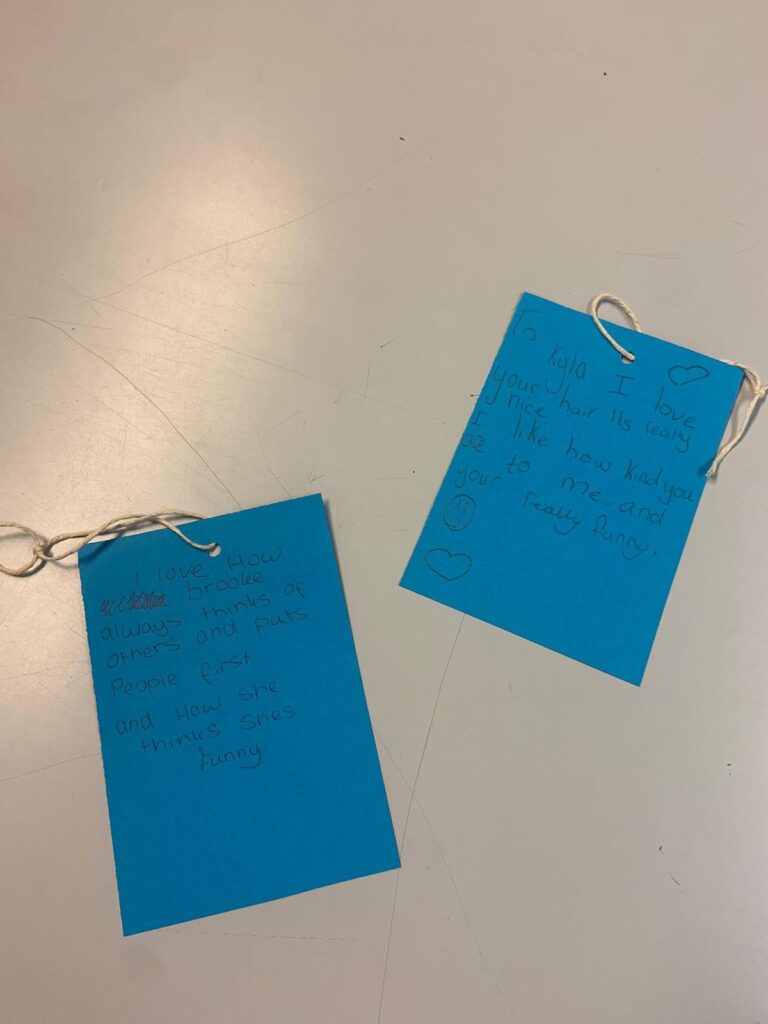 I love How
brooke
always thinks of
others and puts
People first
and How she
thinks shes
funny.
To Kyla I love
your hair its really
nice
I like how kind you
are to me. and
your really funny.